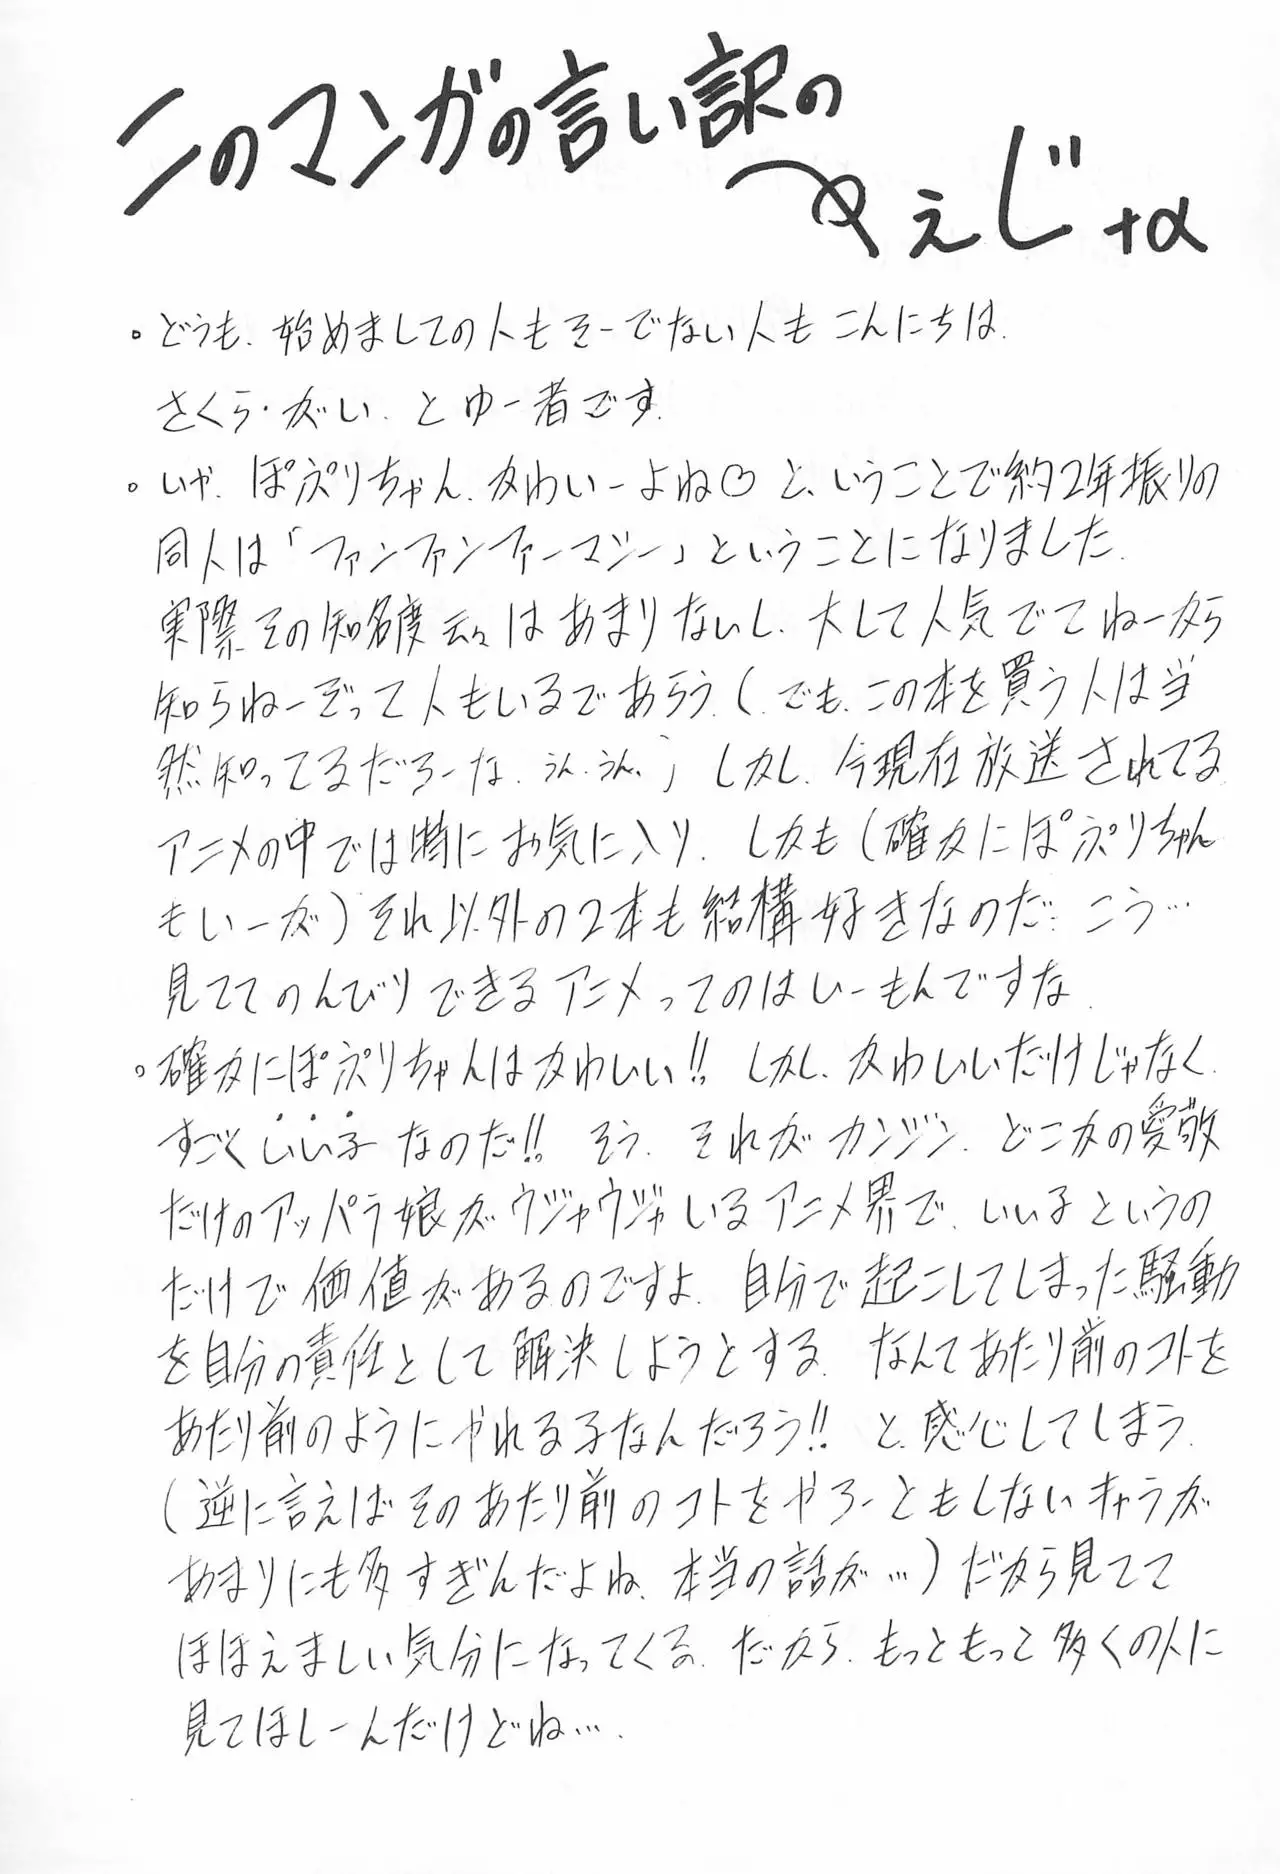 このマンガの言い訳の
ぺぇじ+α
。どうも、始めましての人もそーでない人もこんにちは、
さくら・がい、とゆー者です。
。いや、ぽぷりちゃん、かわいーよね♡ と、いうことで約2年振りの
同人は「ファンファンファーマシー」ということになりました。
実際その知名度云々はあまりないし、大して人気でてねーから
知らねーぞって人もいるであろう、(でも、この本を買う人は当
然知ってるだろーな、うん、うん、) しかし、今現在放送されてる
アニメの中では特にお気に入り、しかも(確かにぽぷりちゃん
もいーが)それ以外の2本も結構好きなのだ。こう…
見ててのんびりできるアニメってのはいーもんですな。
。確かにぽぷりちゃんはかわいい!! しかし、かわいいだけじゃなく、
すごくいい子なのだ!! そう、それがカンジン、どこかの愛敬
だけのアッパラ娘がウジャウジャいるアニメ界で、いい子というの
だけで価値があるのですよ、自分で起こしてしまった騒動
を自分の責任として解決しようとする、なんてあたり前のコトを
あたり前のようにやれる子なんだろう!! と、感心してしまう。
(逆に言えばそのあたり前のコトをやろーともしないキャラが
あまりにも多すぎんだよね、本当の話が…)だから見てて
ほほえましい気分になってくる、だから、もっともっと多くの人に
見てほしーんだけどね…。